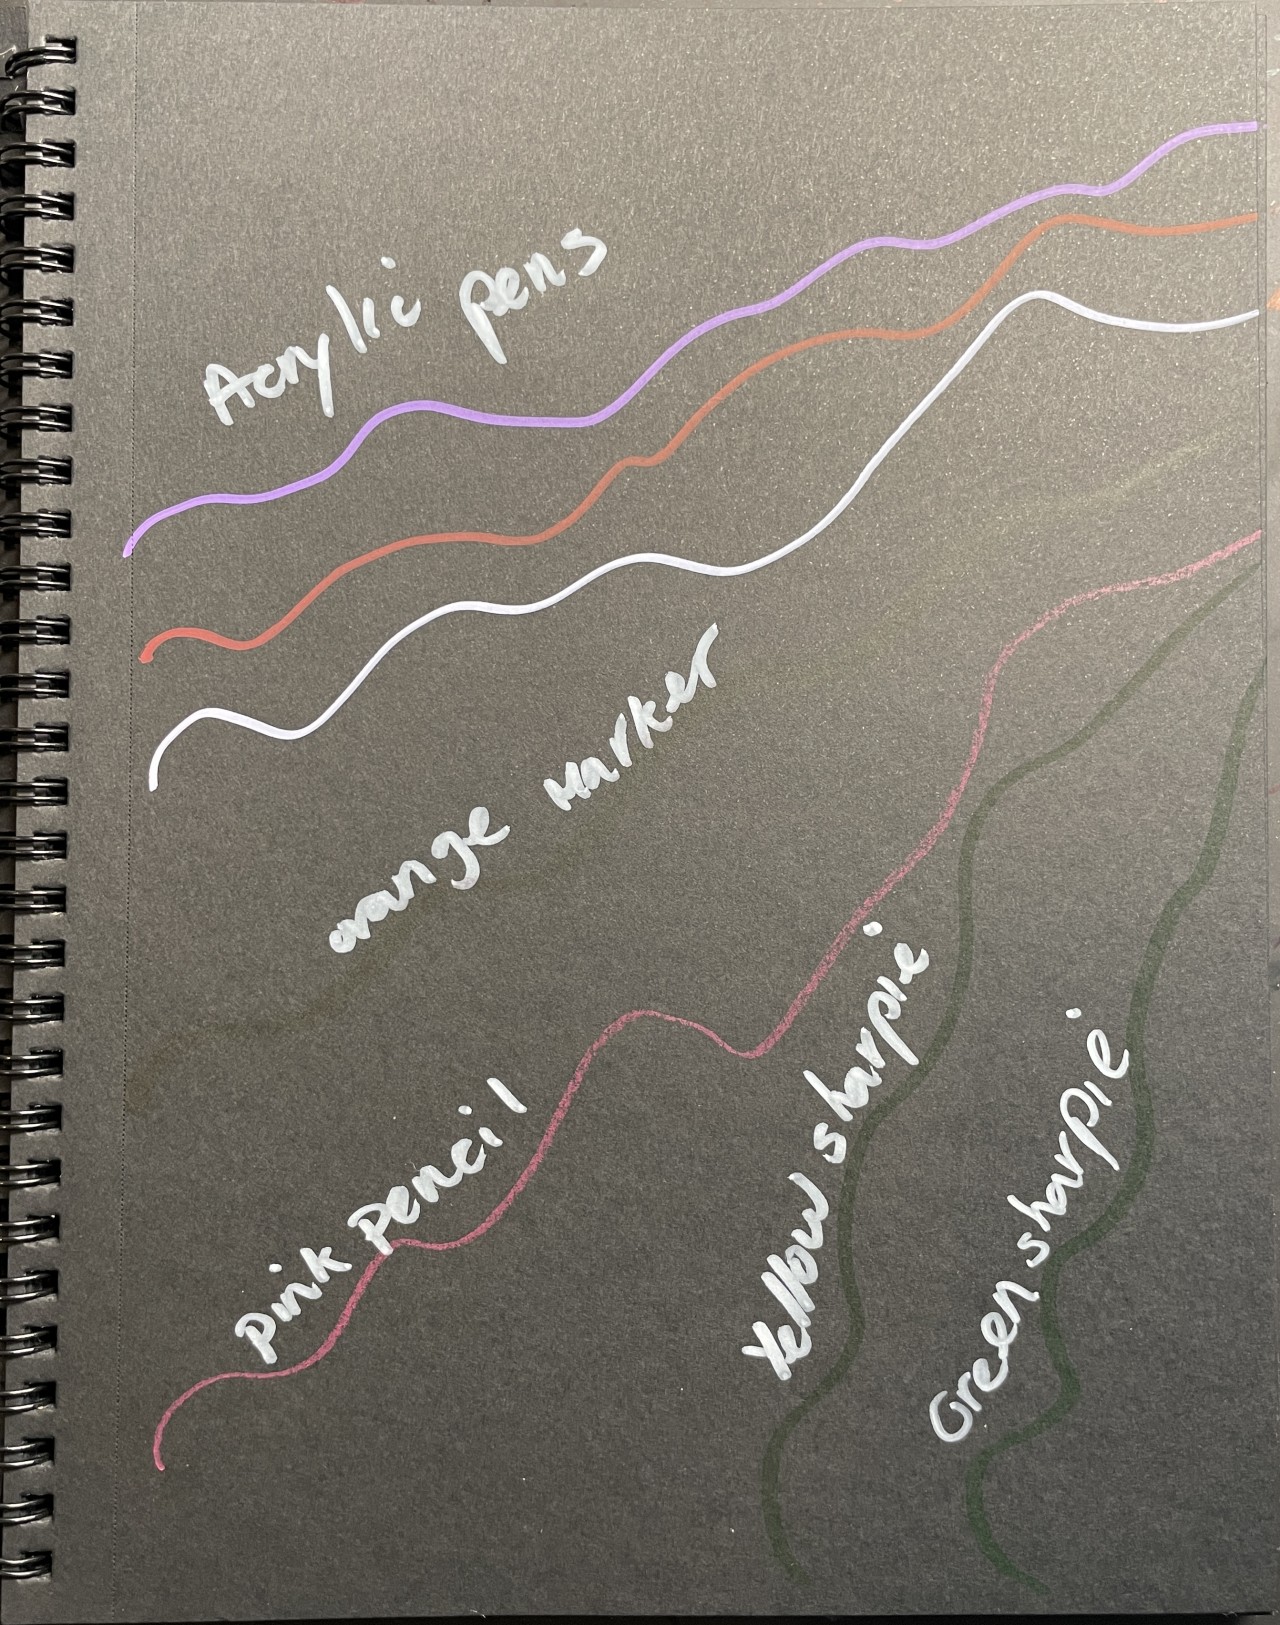 Acrylic pens
orange marker
Pink Pencil
Yellow sharpie
Green sharpie